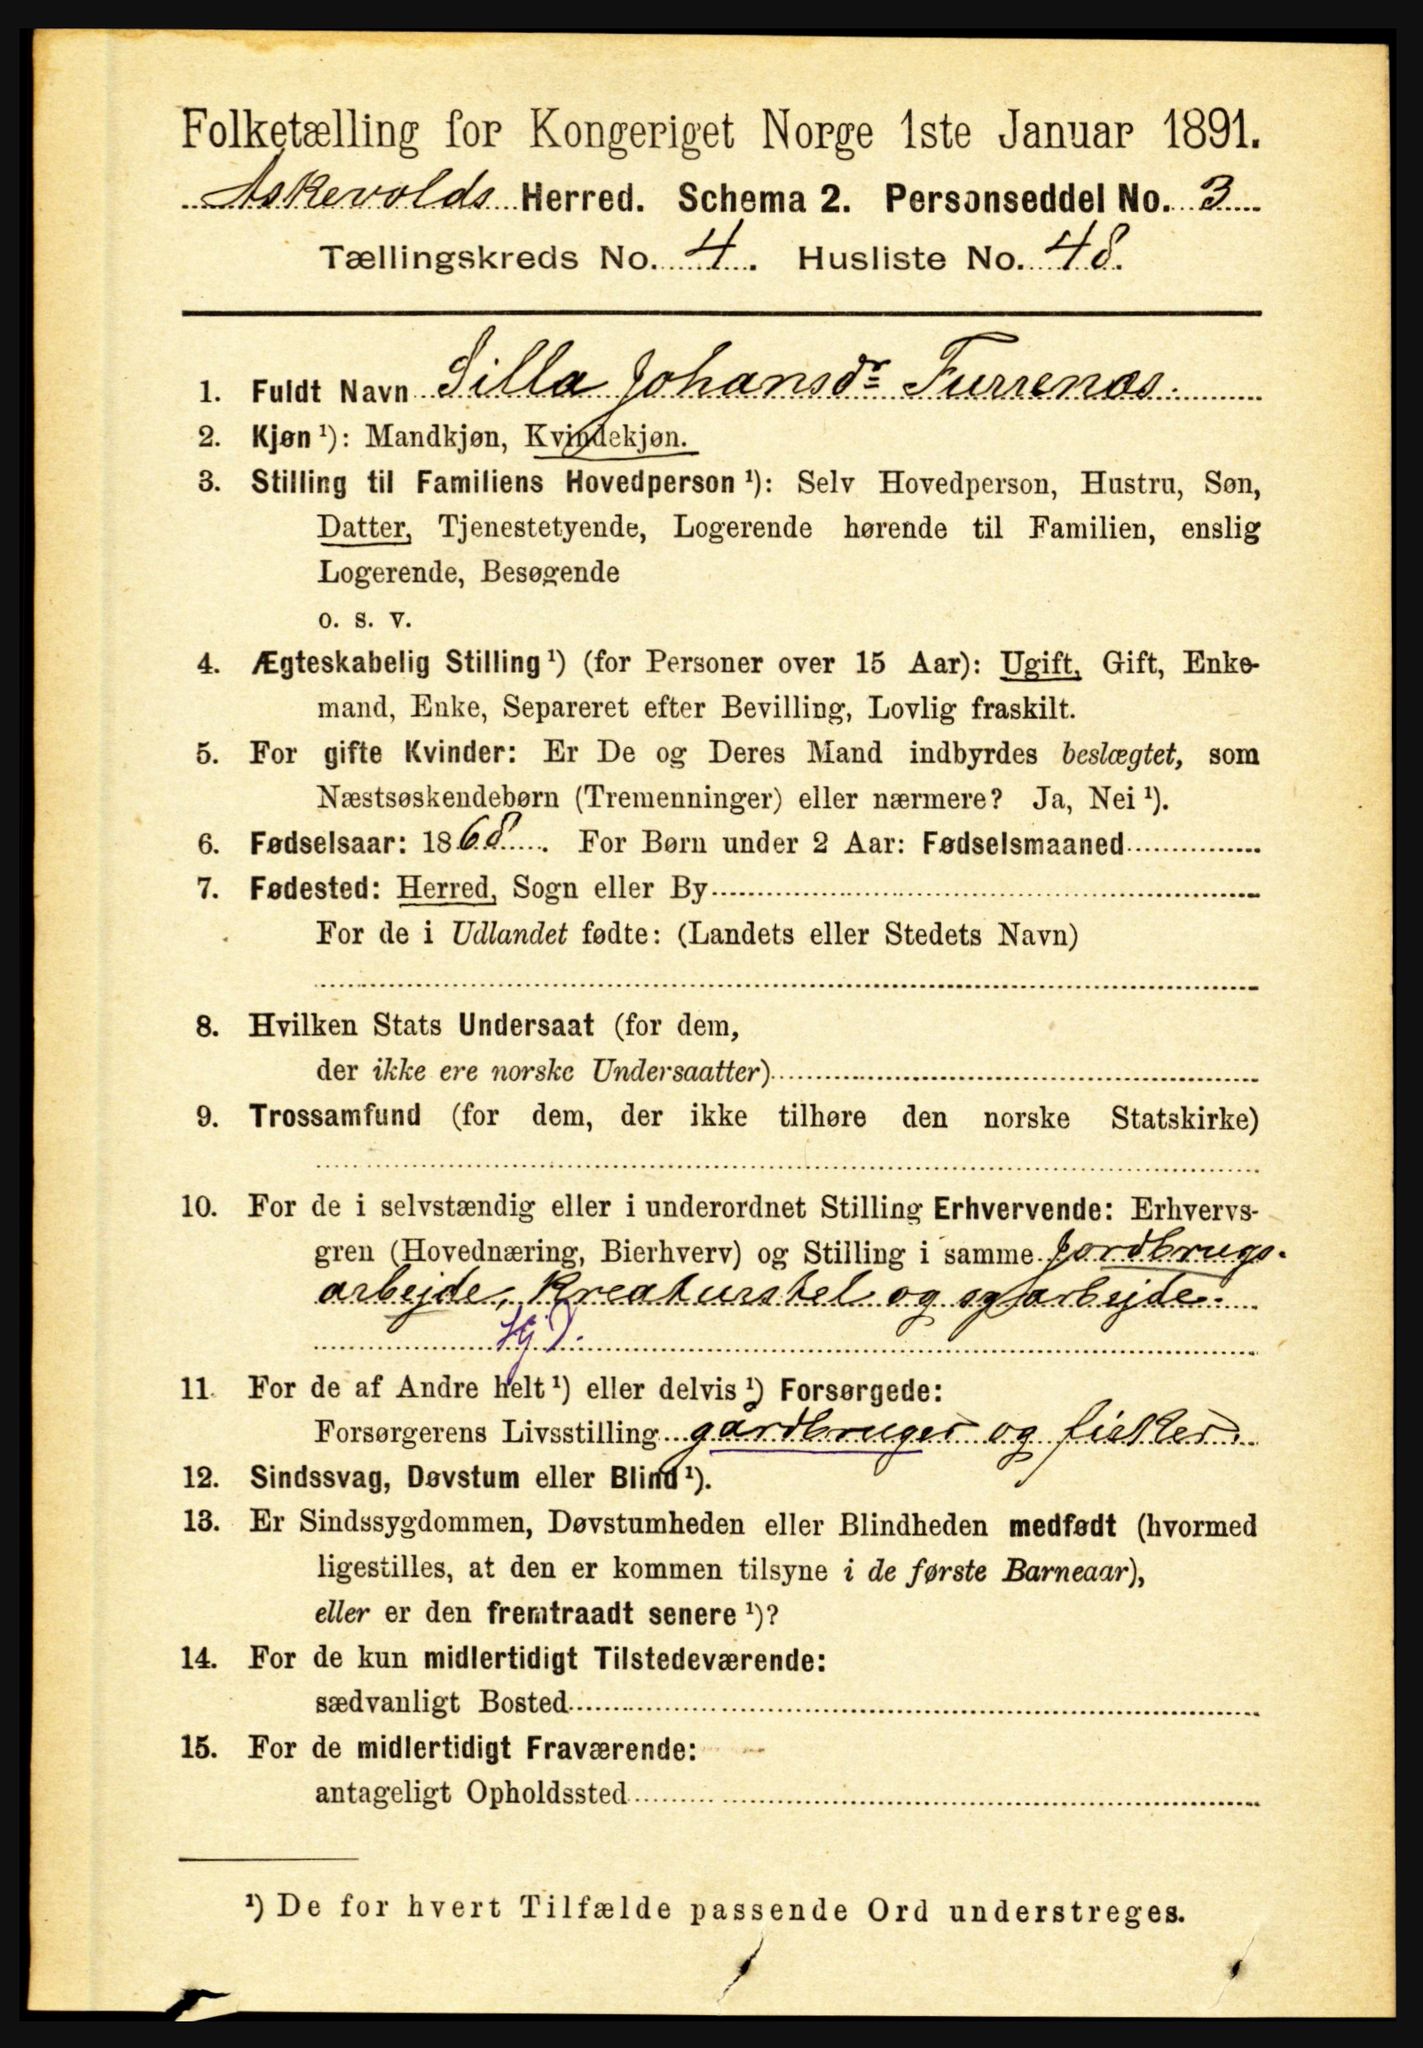 Folketælling for Kongeriget Norge 1ste Januar 1891.
Askevolds Herred. Schema 2. Personseddel No. 3
Tællingskreds No. 4. Husliste No. 48.
1. Fuldt Navn Silla Johansdr Furrenæs.
2. Kjøn ¹): Mandkjøn, Kvindekjøn.
3. Stilling til Familiens Hovedperson ¹): Selv Hovedperson, Hustru, Søn,
Datter, Tjenestetyende, Logerende hørende til Familien, enslig
Logerende, Besøgende
o. s. v.
4. Ægteskabelig Stilling ¹) (for Personer over 15 Aar): Ugift, Gift, Enke-
mand, Enke, Separeret efter Bevilling, Lovlig fraskilt.
5. For gifte Kvinder: Er De og Deres Mand indbyrdes beslægtet, som
Næstsøskendebørn (Tremenninger) eller nærmere? Ja, Nei ¹).
6. Fødselsaar: 1868. For Børn under 2 Aar: Fødselsmaaned
7. Fødested: Herred, Sogn eller By
For de i Udlandet fødte: (Landets eller Stedets Navn)
8. Hvilken Stats Undersaat (for dem,
der ikke ere norske Undersaatter)
9. Trossamfund (for dem, der ikke tilhøre den norske Statskirke)
10. For de i selvstændig eller i underordnet Stilling Erhvervende: Erhvervs-
gren (Hovednæring, Bierhverv) og Stilling i samme Jordbrugs-
arbejde, kreaturstel og syarbejde.
11. For de af Andre helt ¹) eller delvis ¹) Forsørgede:
Forsørgerens Livsstilling gårdbruger og fisker.
12. Sindssvag, Døvstum eller Blind ¹).
13. Er Sindssygdommen, Døvstumheden eller Blindheden medfødt (hvormed
ligestilles, at den er kommen tilsyne i de første Barneaar),
eller er den fremtraadt senere ¹)?
14. For de kun midlertidigt Tilstedeværende:
sædvanligt Bosted
15. For de midlertidigt Fraværende:
antageligt Opholdssted
¹) De for hvert Tilfælde passende Ord understreges.